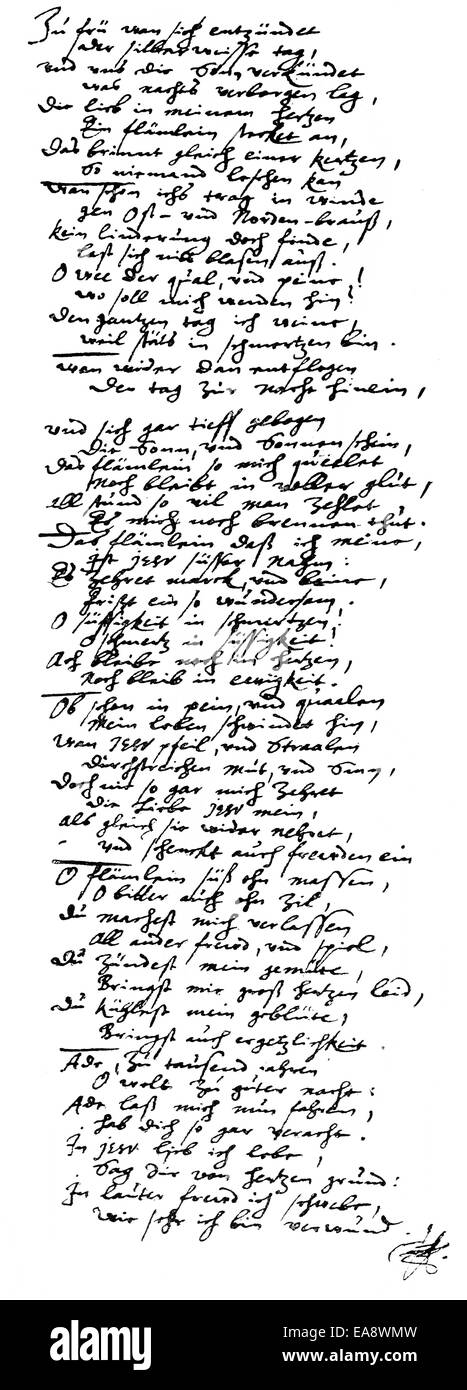 Zu frü wan sich entzündet
der silberweisse tag,
und uns die Sonn verkündet
was nachts verborgen lag,
Die lieb in meinem hertzen
Ein flämlein stecket an,
Das brinnt gleich einer kertzen,
So niemand leschen kan
Wan schon ichs trag in winde
gen Ost- und Norden-brauß,
kein linderung doch finde,
last sich nitt blasen auß.
O wee der qual, und peine!
wo soll mich wenden hin?
den gantzen tag ich weine,
weil stäts in schmertzen bin.
Wan wider dan entflogen
Der tag zur nacht hinein,
und sich gar tieff gebogen
Die Sonn, und Sonnenschein,
Das flämlein so mich queelet
Noch bleibt in voller glüt,
All stund so vil man zehlet
Es mich noch brennen thut.
Das flämlein daß ich meine,
Ist JESU süsser nahm:
Es zehret marck, und beine,
frißt ein so wundersam.
O süssigkeit in schmertzen!
O schmertz in süssigkeit!
Ach bleibe noch im hertzen,
Noch bleib in ewigkeit.
Ob schon in pein, und quaalen
Mein leben schwindet hin,
Wan JESU pfeil, und straalen
Durchstreichen mut, und sinn,
Doch nie so gar mich zehret
Die Liebe JESU mein,
Als gleich sie wider nehret,
und schenckt auch frewden ein
O flämlein süß ohn massen,
O bitter auch ohn zil,
Du machest mich verlassen
All ander frewd, und spiel,
Du zündest mein gemüte,
Bringst mir groß hertzen leid,
Du kühlest mein geblüte,
Bringst auch ergetzlichkeit.
Ade, zu tausend jahren
O welt zu guter nacht:
Ade laß mich nun fahren,
hab dich so gar veracht.
In JESU lieb ich lebe,
Sag dir von hertzen grund:
In lauter frewd ich schwebe,
Wie sehr ich bin verwund.
alamy stock photo
EA8WMW
www.alamy.com